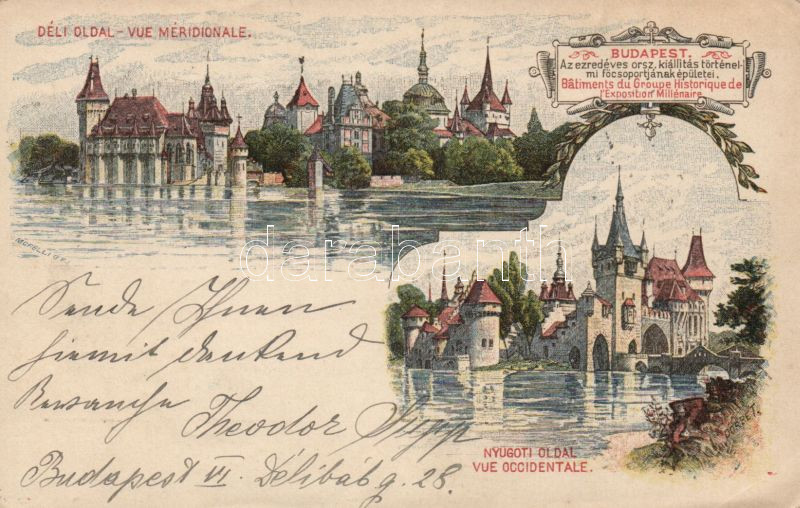 DÉLI OLDAL – VUE MÉRIDIONALE.
BUDAPEST.
Az ezredéves orsz. kiállitás történel-
mi főcsoportjának épületei.
Bâtiments du Groupe Historique de
l'Exposition Millénaire.
MORELLI G.F.
darabanth
Sende Ihnen
hiermit dankend
Revanche Theodor
Budapest VI. Délibáb g. 28.
NYUGOTI OLDAL
VUE OCCIDENTALE.